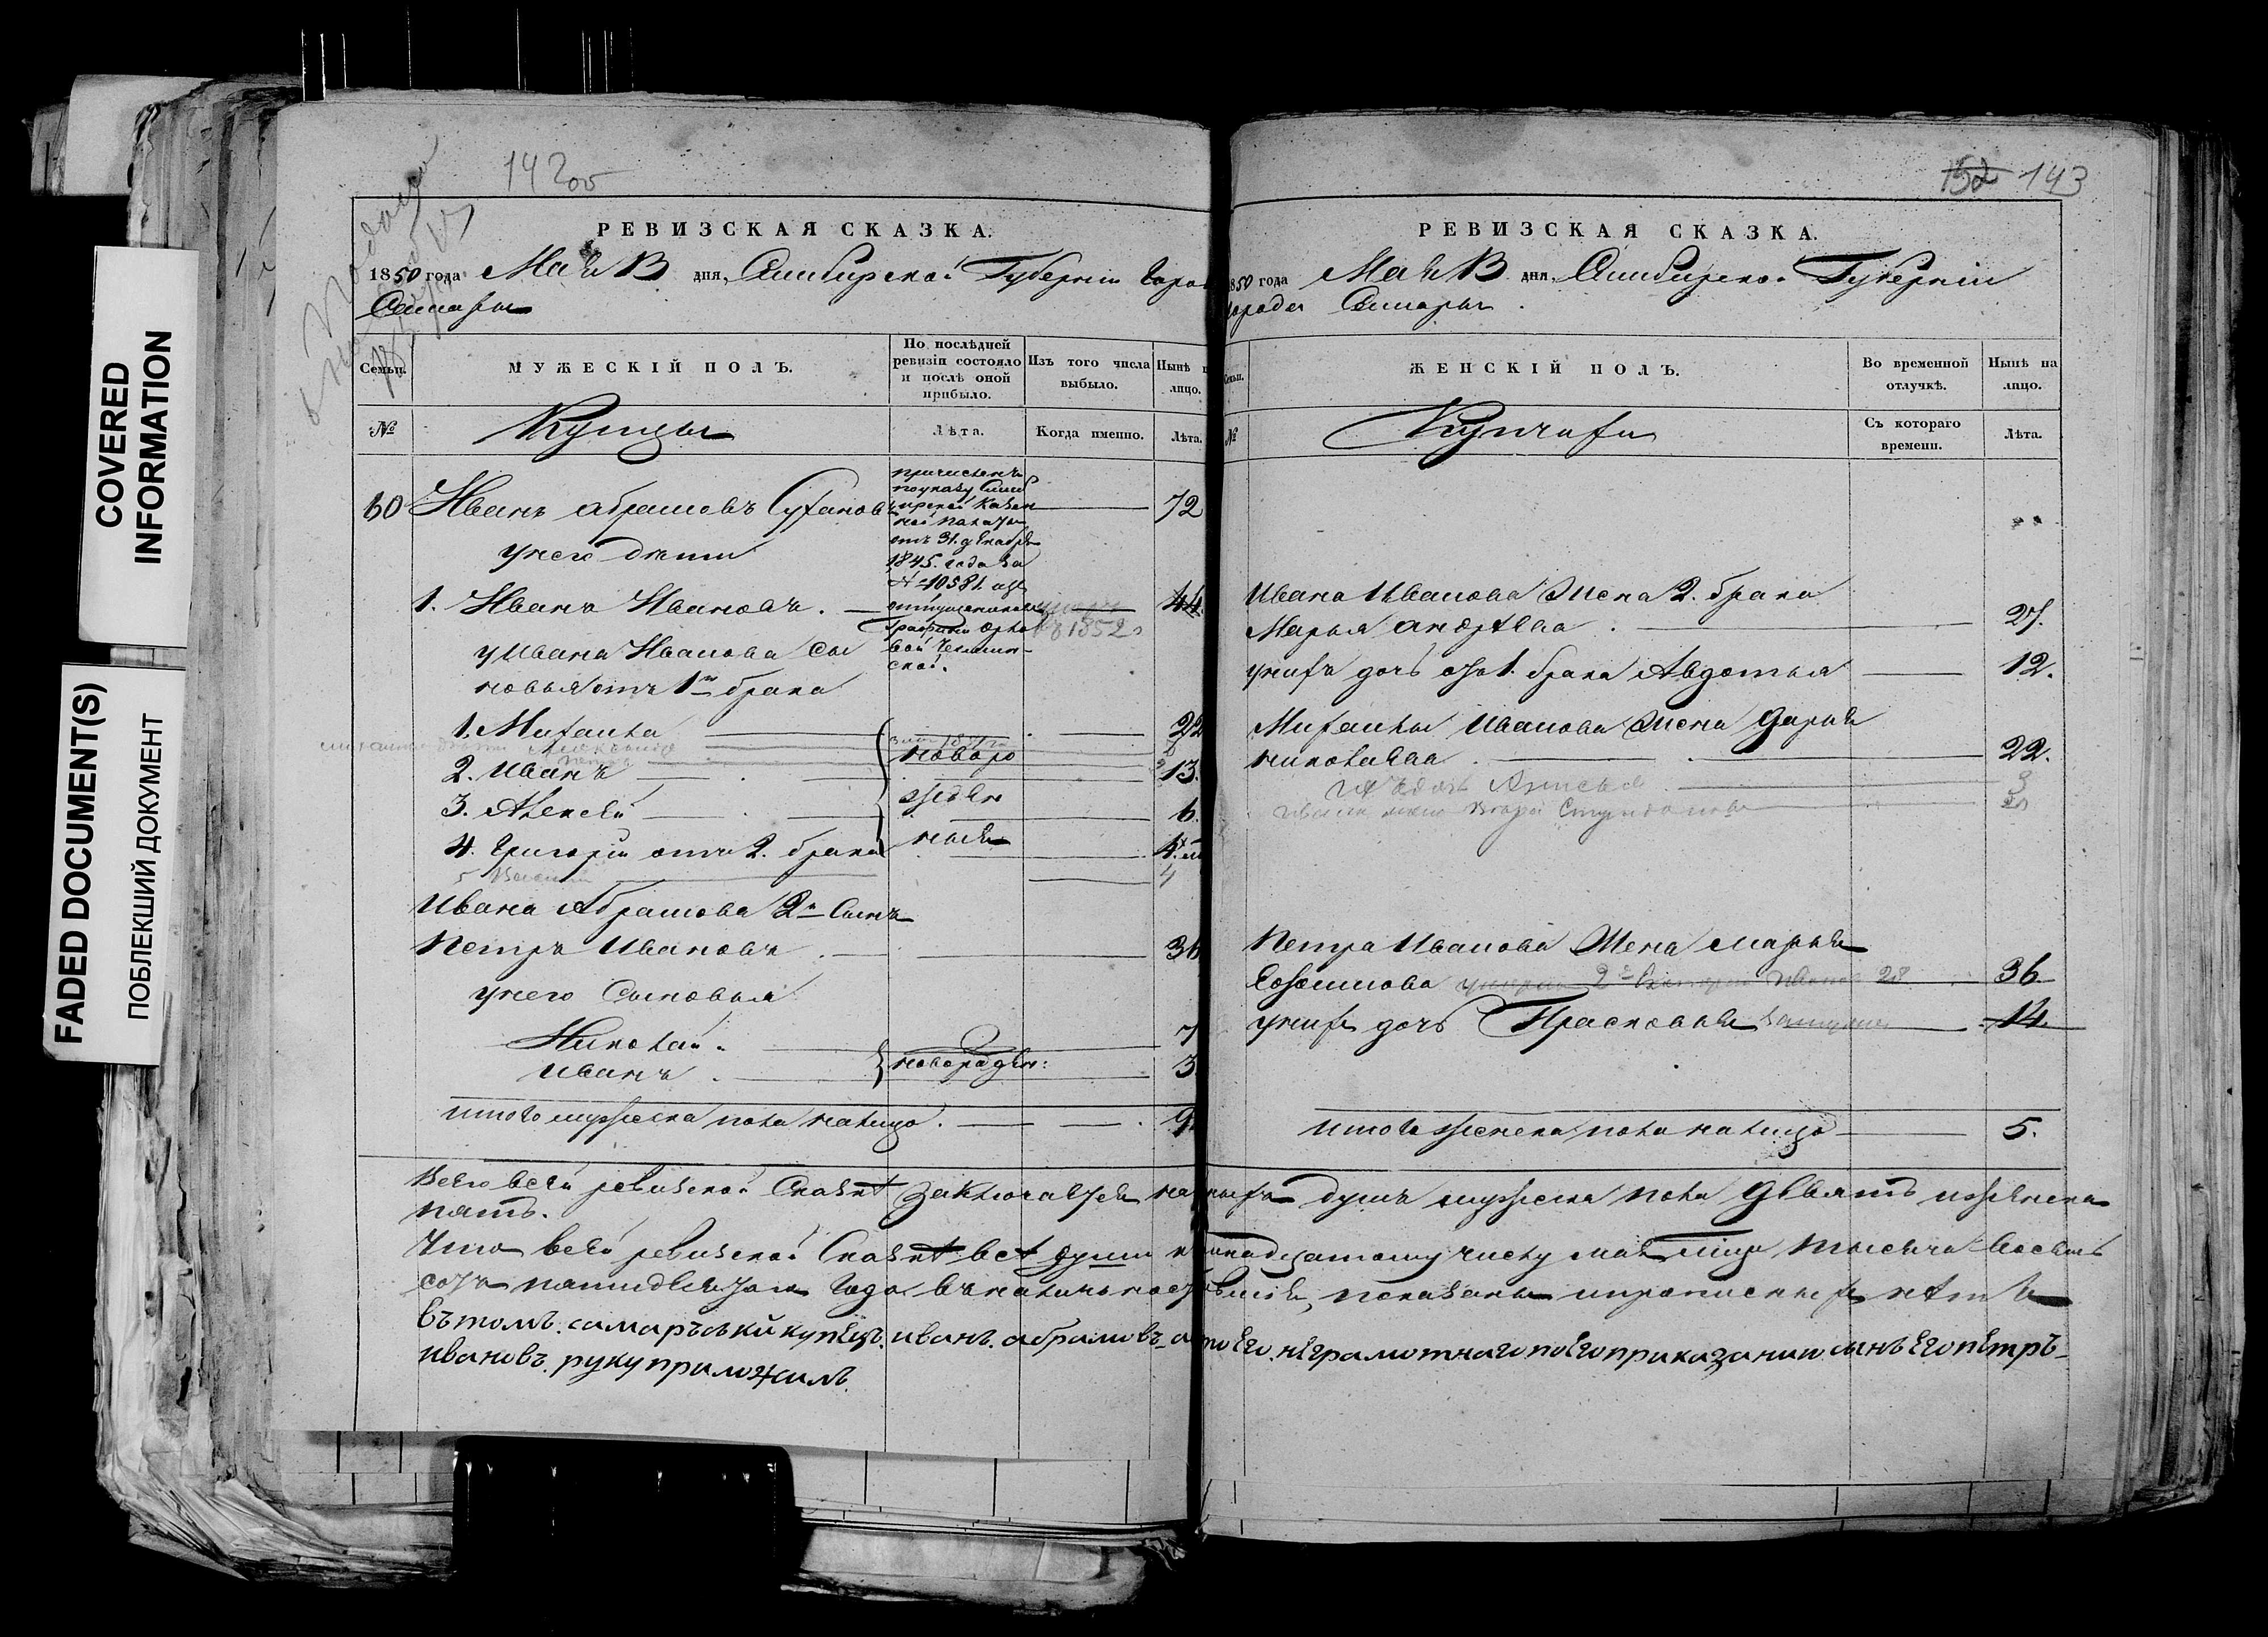 COVERED
INFORMATION
FADED DOCUMENT(S)
ПОБЛЕКШИЙ ДОКУМЕНТ
142 об
РЕВИЗСКАЯ СКАЗКА.
1850 года Маія 13 дня, Симбирской Губерніи Горо
Самары
Семьи. МУЖЕСКІЙ ПОЛЪ. По послѣдней ревизіи состояло и послѣ оной прибыло. Изъ того числа выбыло. Нынѣ на лицо.
№ Купцы Лѣта. Когда именно. Лѣта.
60 Иванъ Абрамовъ Сухановъ 72
причисленъ
по указу Симб
ирской Казен
ной палаты
отъ 31. декабря
1845. года за
№ 10581. изъ
отпущенниковъ
Графини Орло
вой Чесмен-
ской.
у него дети
1. Иванъ Ивановъ. 44
1852
у Ивана Иванова сы
новья отъ 1го брака
1. Михаила 22
2. Иванъ 13.
3. Алексей 6.
4. Григорій отъ 2. брака
новоро
жден
ные
5 Василій 4
Ивана Абрамова 2й Сынъ
Петръ Ивановъ 36
у него Сыновья
Николай. 7
Иванъ. новорожден: 3
итого мужеска пола налицо. 9
152 143
РЕВИЗСКАЯ СКАЗКА.
1850 года Маія 13 дня, Симбирской Губерніи
города Самары.
Семьи. ЖЕНСКІЙ ПОЛЪ. Во временной отлучкѣ. Нынѣ на лицо.
№ Купчихи Съ котораго времени. Лѣта.
Ивана Иванова жена 2. брака
Марья Андреева 27.
у нихъ дочь отъ 1. брака Авдотья 12.
Михаилы Иванова жена Дарья
Николаева 22.
Петра Иванова жена Марья
Ефимова 36.
у нихъ дочь Прасковья 14.
итого женска пола налицо 5.
Всего в сей ревизской Сказкѣ заключается наличныхъ душъ мужеска пола девять и женска
пять.
Что в сей ревизской Сказкѣ всѣ души к тринадцатому числу маія мца тысяча восемь
сотъ пятидесятаго года въ наличности бывшія, показаны и прописныхъ нѣтъ
въ томъ. самаръской купецъ. иванъ. абрамовъ а по Его. неграмотнаго по Его приказанию сынъ Его пЕтръ
ивановъ. руку приложилъ.